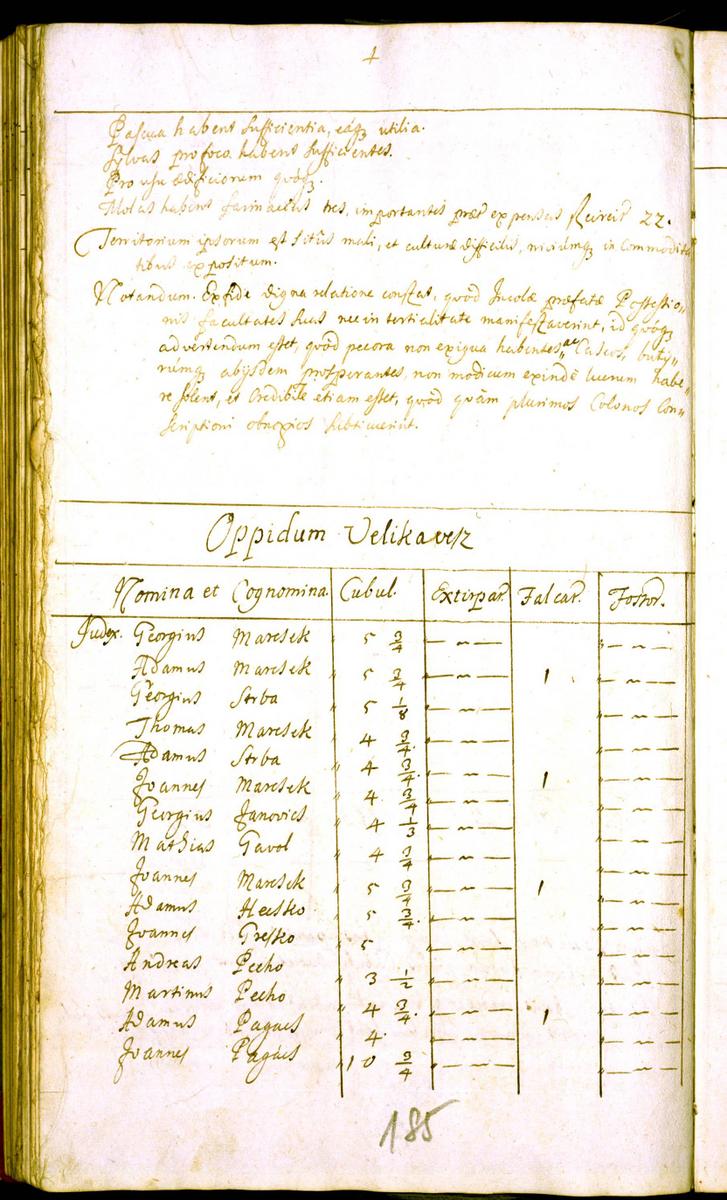 4
Pascua habent sufficientia, eáq3 utilia.
Sylvas pro foco habent sufficientes.
Pro usu ædificiorum quoq3
Molas habent farinaceas tres, importantes præter expensas 22.
Territorium ipsorum est situs mali, et culturæ difficilis, in commodita
tibus expositum.
Notandum. Ex fide digna relatione constat, quòd Incolæ præfatæ Possessio„
nis facultates suas nec in tertialitate manifestaverint, id quoq3
advertendum esset, quòd pecora non exigua habentes„ ac Caseos, buty„
rúmq3 ab ijsdem prosperantes, non modicum exindè lucrum habe„
re solent, et Credibile etiam esset, quòd quàm plurimos Colonos Con„
scriptioni obnoxios subticuerint.
Oppidum Velikavesz
Nomina et Cognomina Cubul. Extirpar. Falcar. Fossor.
Judex. Georgius Marcsek 5 3/4 — „ — „ — „ —
Adamus Marcsek 5 3/4 — „ — 1 „ — „ —
Georgius Strba 5 1/8 — „ — „ — „ —
Thomas Marcsek 4 3/4 — „ — „ — „ —
Adamus Strba 4 3/4 — „ — „ — „ —
Joannes Marcsek 4 3/4 — „ — 1 „ — „ —
Georgius Janovics 4 1/3 — „ — „ — „ —
Mathias Gavol 4 3/4 — „ — „ — „ —
Joannes Marcsek 5 3/4 — „ — 1 „ — „ —
Adamus Hecsko 5 3/4. — „ — „ — „ —
Joannes Gresko 5 — „ — „ — „ —
Andreas Pecho 3 1/2 — „ — „ — „ —
Martinus Pecho 4 3/4. — „ — 1 „ — „ —
Adamus Pagacs 4. — „ — „ — „ —
Joannes Pagács 10 3/4 — „ — „ — „ —
185